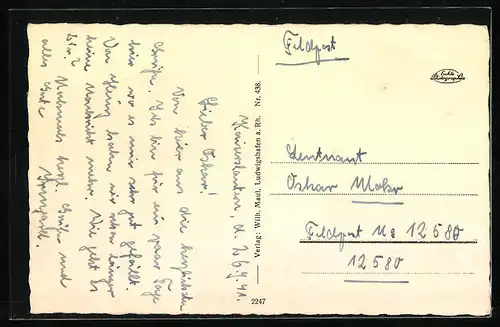 Kaiserslautern, d. 20.9.41.
Lieber Oskar!
Von hier aus die herzlichsten
Grüße. Ich bin für ein paar Tage
hier wo es mir sehr gut gefällt.
Von haben wir schon länger
keine Nachricht mehr. Wie geht es
Dir? Nochmals herzl. Grüße und
alles Gute
Irmgard.
Verlag: Wilh. Maul, Ludwigshafen a. Rh. Nr. 438.
2247
Feldpost
Echte
Photographie
Leutnant
Oskar Mohr
Feldpost No 12580
12580